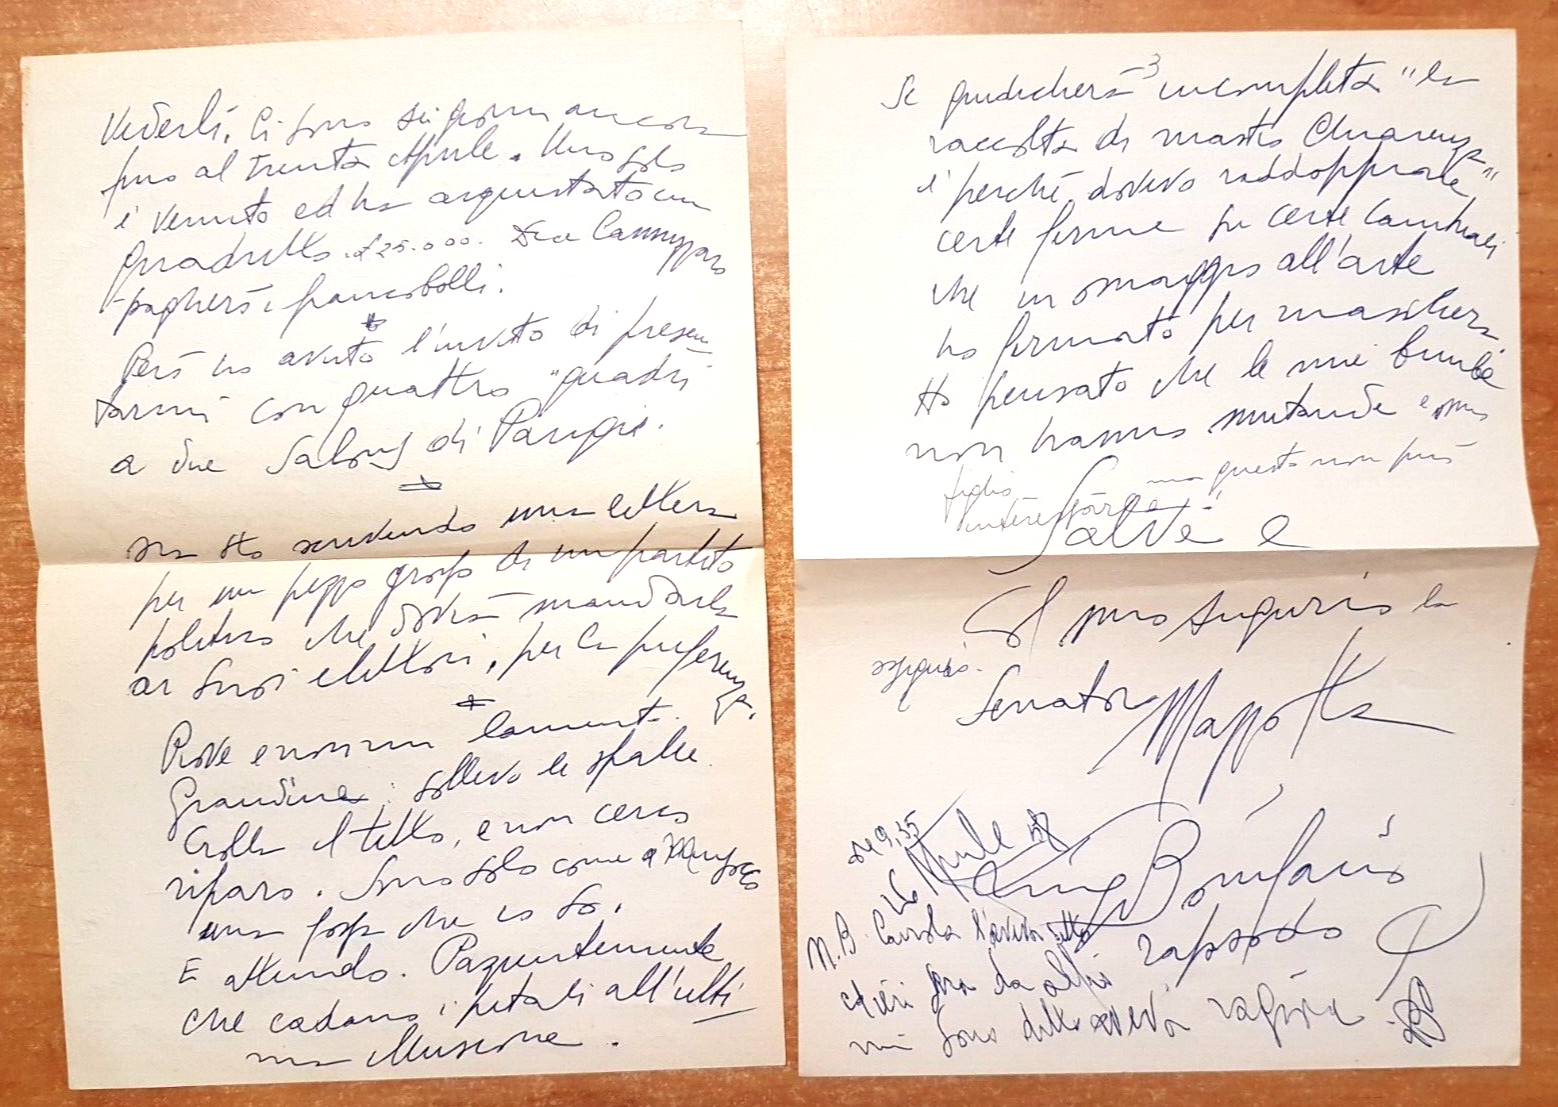 Vederli. Ci sono sei giorni ancora
fino al trenta Aprile. Uno solo
è venuto ed ha acquistato un
quadretto £ 25.000. Due
pagherò i francobolli.
Però ho avuto l'invito di presen
tarmi con quattro "quadri
a due Salons di Parigi.
Ora sto scrivendo una lettera
per un pezzo grosso di un partito
politico che dovrà mandarla
ai suoi elettori, per la preferenza.
Piove e non mi lamento.
Grandina: sollevo le spalle.
Crolla il tetto, e non cerco
riparo. Sono solo come a
una forza che io so.
E attendo. Pazientemente
che cadano i petali all'ulti
ma illusione.
3
Se giudicherà incompleta "la
raccolta di mastro Chiarenza"
è perché dovevo raddoppiare
certe firme su certe cambiali
che in omaggio all'arte
ho firmato per
Ho pensato che le mie bimbe
non hanno mutande e mio
figlio ma questo non può
interessare
Salve e
Il mio augurio la
Senatore Mazzotta
ore 9,35
26 Aprile
Bonifacio
rapsodo
N.B. l'aveva
ieri sera da
mi sono detto aveva ragione